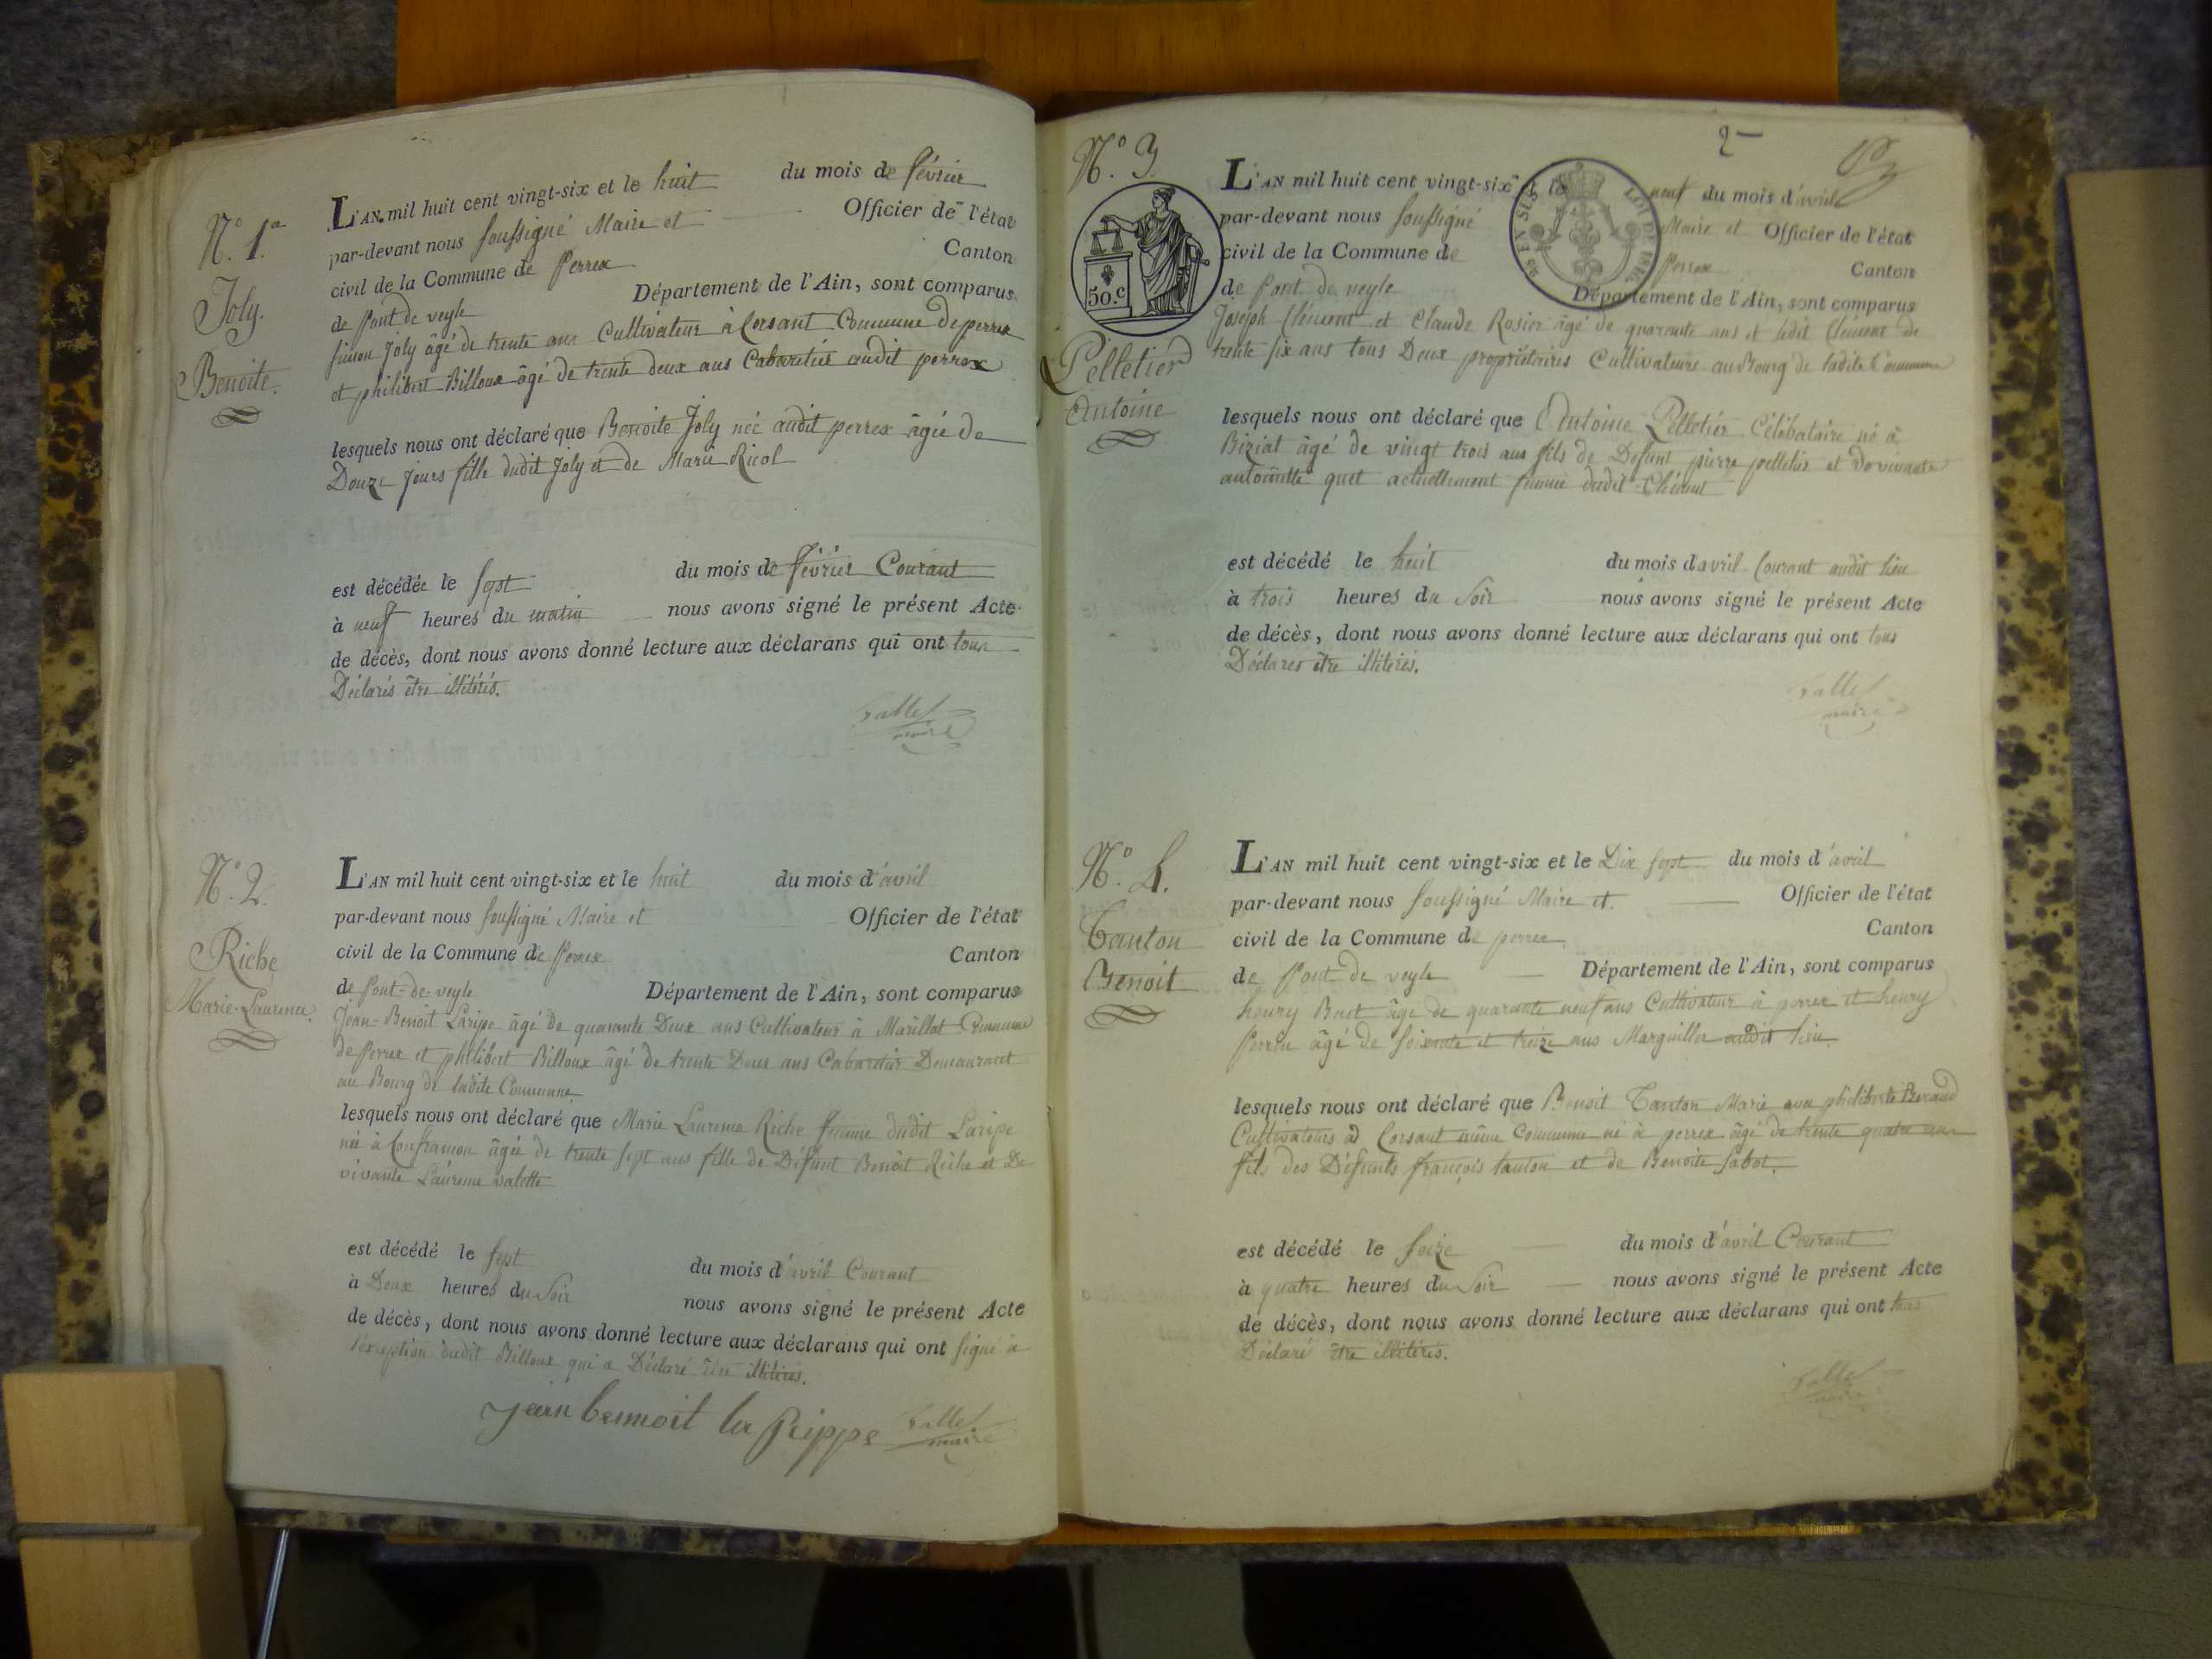 N.º 1.er
Joly.
Benoite.
L'AN mil huit cent vingt-six et le huit du mois de février
par-devant nous soussigné Maire et Officier de l'état
civil de la Commune de Perrex Canton
de Pont de veyle Département de l'Ain, sont comparus
simon Joly âgé de trente ans Cultivateur à Corsant Commune de perrex
et philibert Billoux âgé de trente deux ans Cabaretier audit perrex
lesquels nous ont déclaré que Benoite Joly née audit perrex âgée de
Douze Jours fille dudit Joly et de Marie Ricol
est décédée le sept du mois de février Courant
à neuf heures du matin nous avons signé le présent Acte
de décès, dont nous avons donné lecture aux déclarans qui ont tous
Déclarés être illitérés.
maire
N.º 2.
Riche
Marie-Laurence.
L'AN mil huit cent vingt-six et le huit du mois d'avril
par-devant nous soussigné Maire et Officier de l'état
civil de la Commune de Perrex Canton
de Pont-de-veyle Département de l'Ain, sont comparus
Jean-Benoit Laripe âgé de quarante Deux ans Cultivateur à Marillat Commune
de Perrex et philibert Billoux âgé de trente Deux ans Cabaretier Demeurant
au Bourg de ladite Commune
lesquels nous ont déclaré que Marie Laurence Riche femme dudit Laripe
née à Confrançon âgée de trente sept ans fille de Défunt Benoit Riche et De
vivante Laurence valette
est décédé le sept du mois d'avril Courant
à Deux heures du soir nous avons signé le présent Acte
de décès, dont nous avons donné lecture aux déclarans qui ont signé à
l'exception dudit Billoux qui a Déclaré être illitérés.
jean benmoit la Rippe
maire
2
N.º 3.
50.c
LOI DE 1816
Pelletier
Antoine
L'AN mil huit cent vingt-six et le neuf du mois d'avril
par-devant nous soussigné Maire et Officier de l'état
civil de la Commune de Perrex Canton
de Pont de veyle Département de l'Ain, sont comparus
Joseph Clément et Claude Rosier âgé de quarante ans et ledit Clément de
trente six ans tous Deux propriétaires Cultivateurs au Bourg de ladite Commune
lesquels nous ont déclaré que Antoine Pelletier Célibataire né à
Biziat âgé de vingt trois ans fils de Defunt pierre pelletier et De vivante
actuellement femme dudit Clément
est décédé le huit du mois d'avril Courant audit lieu
à trois heures du soir nous avons signé le présent Acte
de décès, dont nous avons donné lecture aux déclarans qui ont tous
Déclarés être illitérés.
maire
N.º 4.
Tanton
Benoit
L'AN mil huit cent vingt-six et le Dix sept du mois d'avril
par-devant nous soussigné Maire et Officier de l'état
civil de la Commune de perrex Canton
de Pont de veyle Département de l'Ain, sont comparus
henry Buet âgé de quarante neuf ans Cultivateur à perrex et henry
Perrin âgé de soixante et treize ans Marguiller audit lieu.
lesquels nous ont déclaré que Benoit Tanton Marié avec philiberte
Cultivateurs à Corsant même Commune né à perrex âgé de trente quatre ans
fils des Défunts françois tanton et de Benoite Sabot.
est décédé le seize du mois d'avril Courant
à quatre heures du soir nous avons signé le présent Acte
de décès, dont nous avons donné lecture aux déclarans qui ont tous
Déclaré être illitérés.